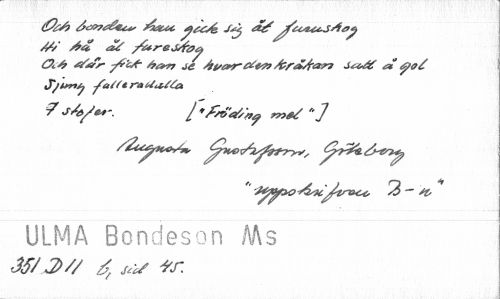 Och bonden han gick sig åt furuskog
Hi hå ål fureskog
Och där fick han se hvarden kråkan satt å gol
Sjung falleradalla
7 stofer. ["Fröding mel"]
Augusta Gustafsson, Göteborg
"uppskrifven B-n"
ULMA Bondeson Ms
351 D 11 b, sid 45.